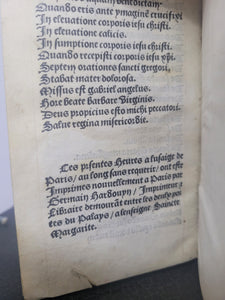 benedictam.
Quando eris ante ymaginē crucifixi
In eleuatione corporis iesu christi.
In eleuatione calicis.
In sumptione corporis iesu christi.
Quando recepisti corporis iesu xp̄i.
Septem orationes sancti gregori.
Stabat mater dolorosa.
Missus est gabriel angelus.
Hore beate barbare virginis.
Deus propicius esto michi peccatori.
Salue regina misericordie.
Ces presentes Heures a lusaige de
Paris / au long sans requerir / ont este
Imprimes nouuellement a Paris par
Germain Hardouyn / Imprimeur /
Libraire demourāt entre les deux por
tes du Palays / a lenseigne Saincte
Margarite.